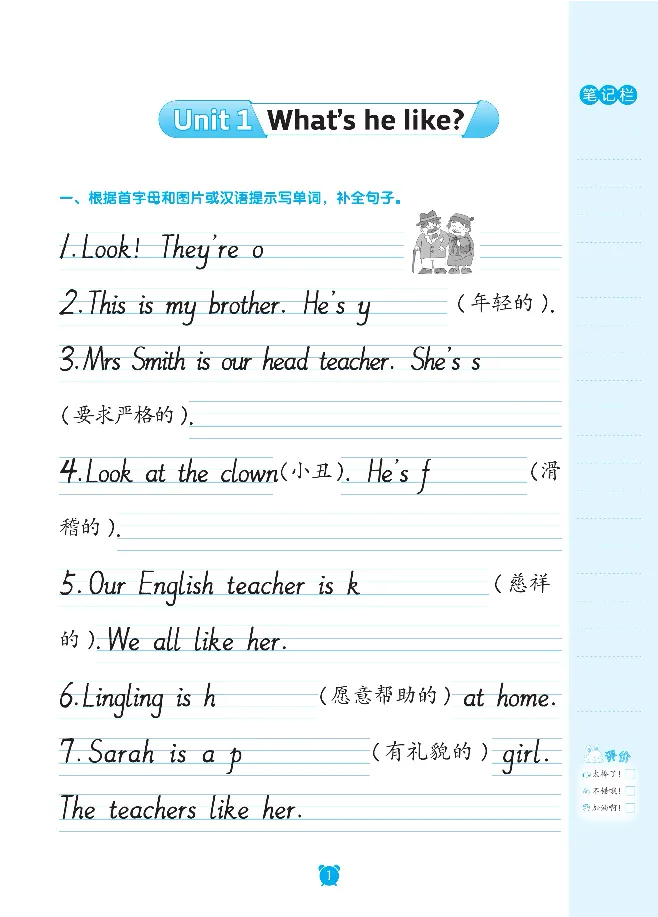 笔记栏
Unit 1 What's he like?
一、根据首字母和图片或汉语提示写单词，补全句子。
1. Look! They're o
2. This is my brother. He's y (年轻的).
3. Mrs Smith is our head teacher. She's s
(要求严格的).
4. Look at the clown(小丑). He's f (滑
稽的).
5. Our English teacher is k (慈祥
的). We all like her.
6. Lingling is h (愿意帮助的) at home.
7. Sarah is a p (有礼貌的) girl.
The teachers like her.
评价
太棒了!
不错哦!
加油啊!
1